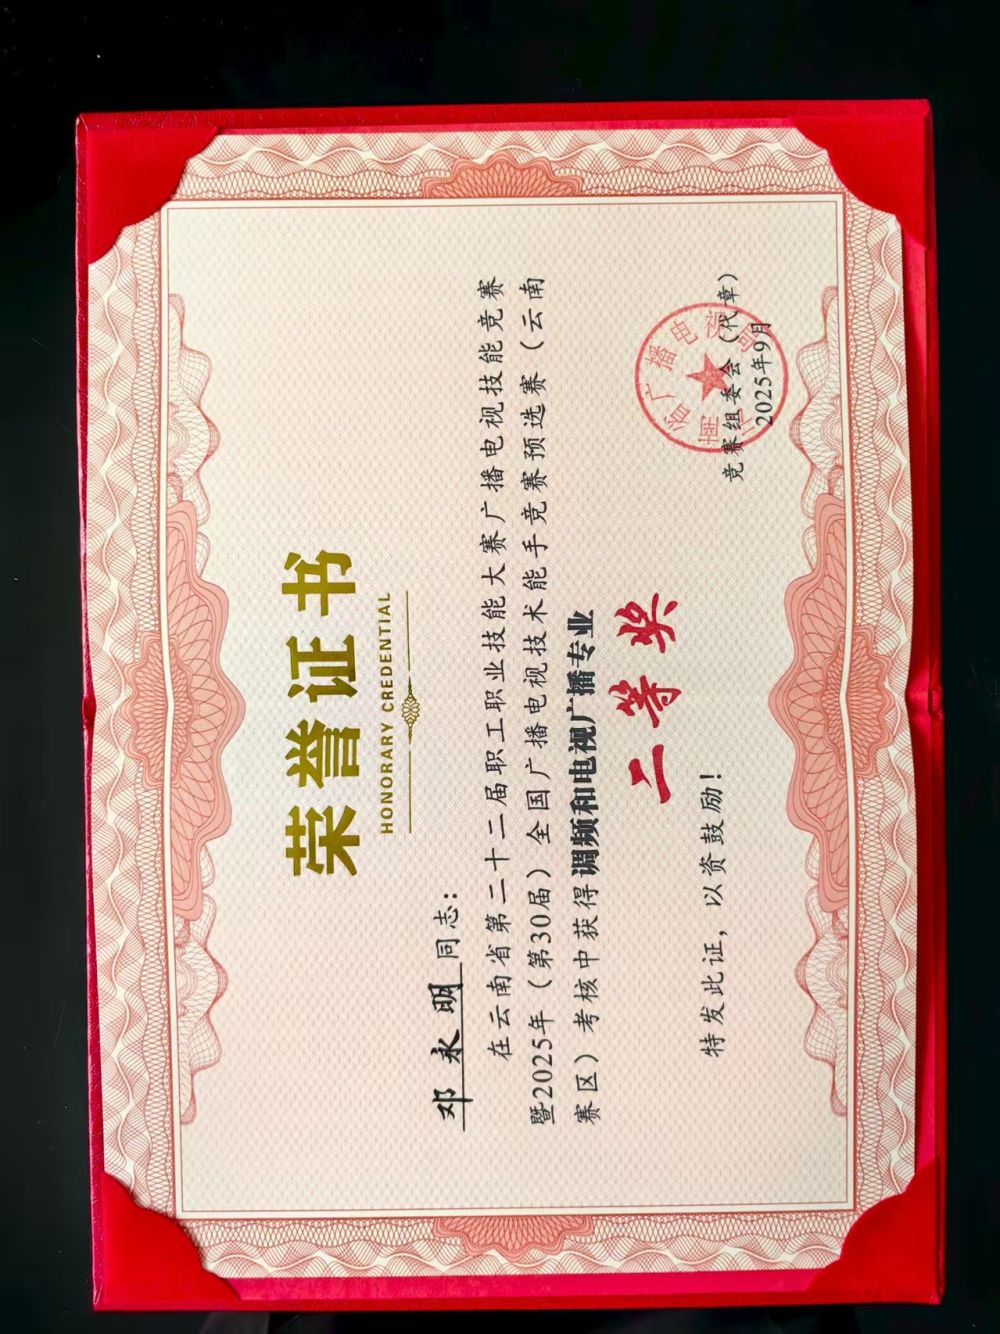 荣誉证书
HONORARY CREDENTIAL
邓永明同志：
在云南省第二十二届职工职业技能大赛广播电视技能竞赛
暨2025年（第30届）全国广播电视技术能手竞赛预选赛（云南
赛区）考核中获得调频和电视广播专业
二等奖
特发此证，以资鼓励！
竞赛组委会（代章）
2025年9月
南省广播电视局